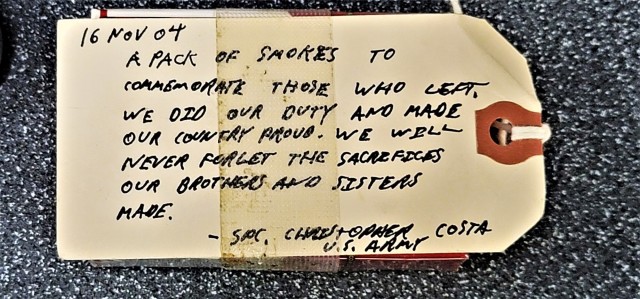 16 NOV 04
A PACK OF SMOKES TO
COMMEMORATE THOSE WHO LEFT.
WE DID OUR DUTY AND MADE
OUR COUNTRY PROUD. WE WILL
NEVER FORGET THE SACRIFICES
OUR BROTHERS AND SISTERS
MADE.
- SPC. CHRISTOPHER COSTA
U.S. ARMY